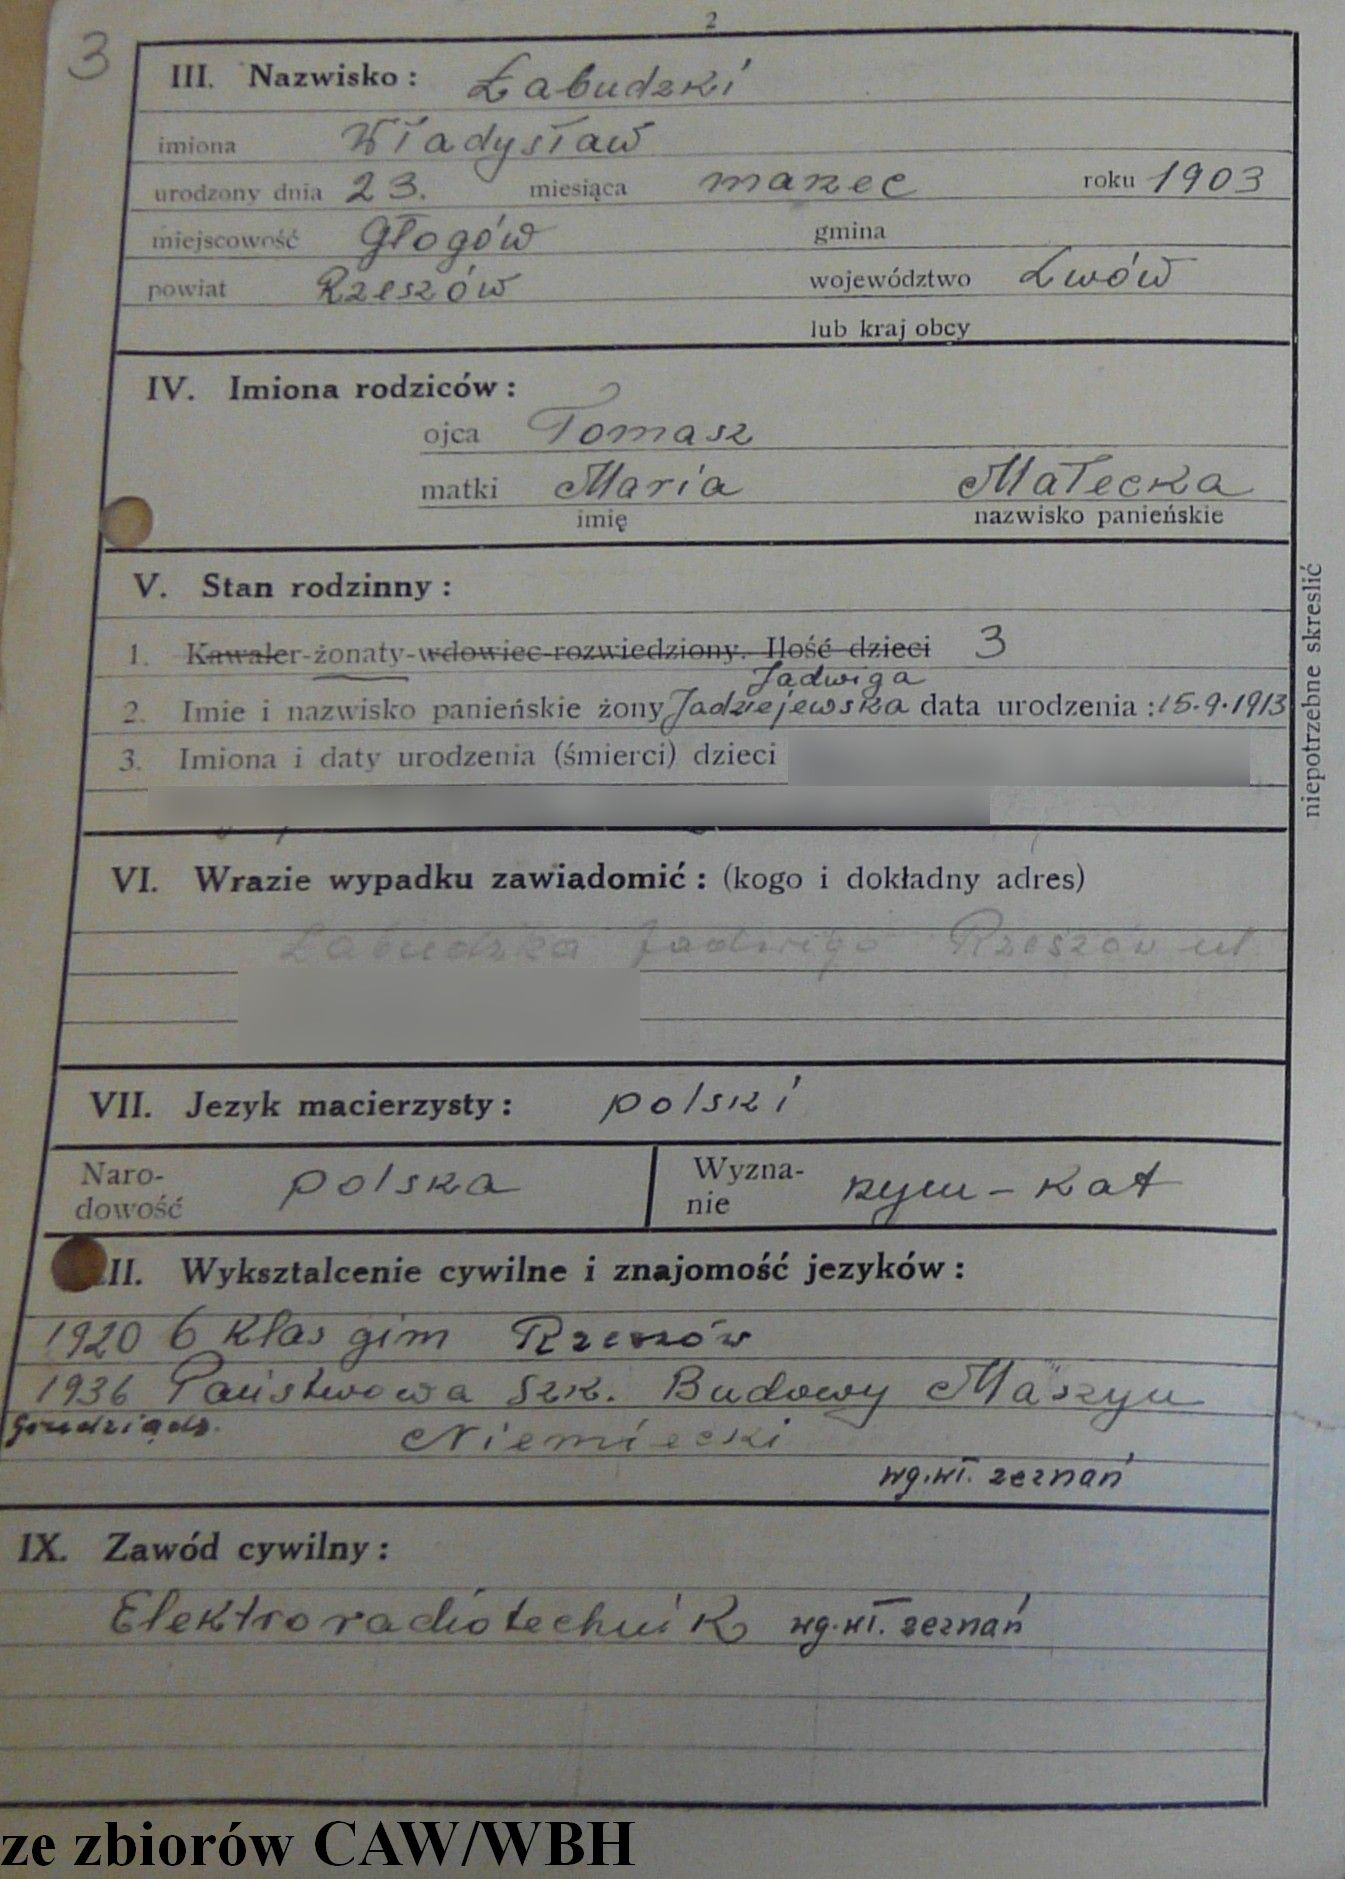 2
3
III. Nazwisko: Łabudzki
imiona Władysław
urodzony dnia 23. miesiąca marzec roku 1903
miejscowość Głogów gmina
powiat Rzeszów województwo Lwów
lub kraj obcy
IV. Imiona rodziców:
ojca Tomasz
matki Maria Małecka
imię nazwisko panieńskie
V. Stan rodzinny:
1. Kawaler-żonaty-wdowiec-rozwiedziony. Ilość dzieci 3
Jadwiga
2. Imie i nazwisko panieńskie żony Jadziejewska data urodzenia: 15.9.1913
3. Imiona i daty urodzenia (śmierci) dzieci
niepotrzebne skreslić
VI. Wrazie wypadku zawiadomić: (kogo i dokładny adres)
Łabudzka Jadwiga Rzeszów ul.
VII. Jezyk macierzysty: polski
Naro- polska Wyzna- rzym-kat
dowość nie
II. Wyksztalcenie cywilne i znajomość jezyków:
1920 6 klas gim Rzeszów
1936 Państwowa Szk. Budowy Maszyn
Grudziądz. Niemiecki
wg.wł. zeznań
IX. Zawód cywilny:
Elektroradiotechnik wg.wł. zeznań
ze zbiorów CAW/WBH